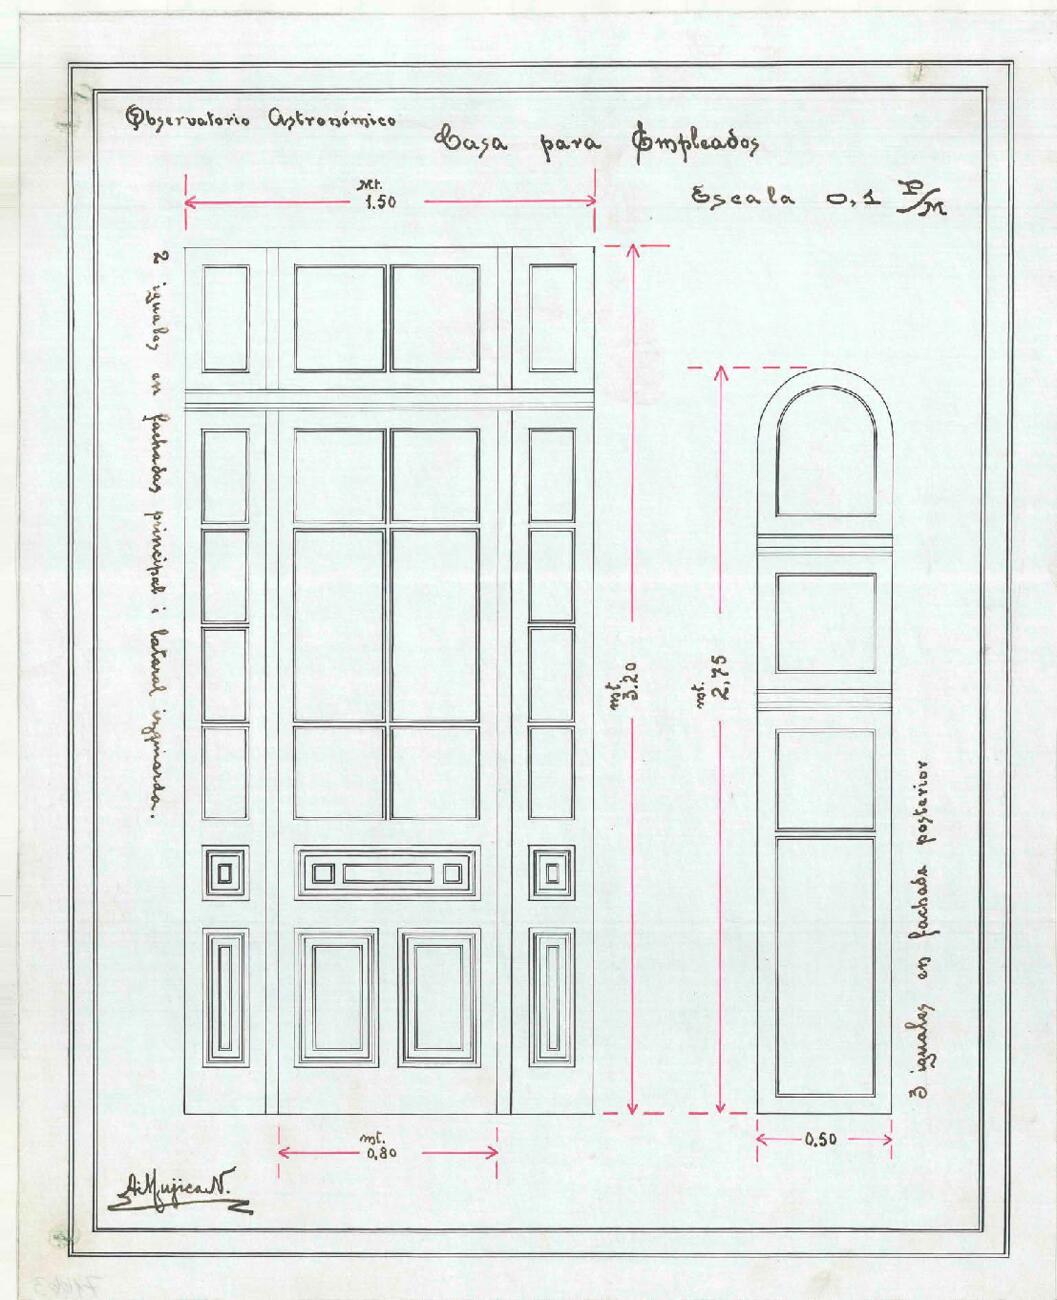 Observatorio Astronómico
Casa para Empleados
Escala 0,1 P/M
Mt.
1.50
2 iguales en fachadas principal i lateral izquierda.
mt.
3.20
mt.
2,75
3 iguales en fachada posterior
mt.
0,80
0,50
A. Mujica N.